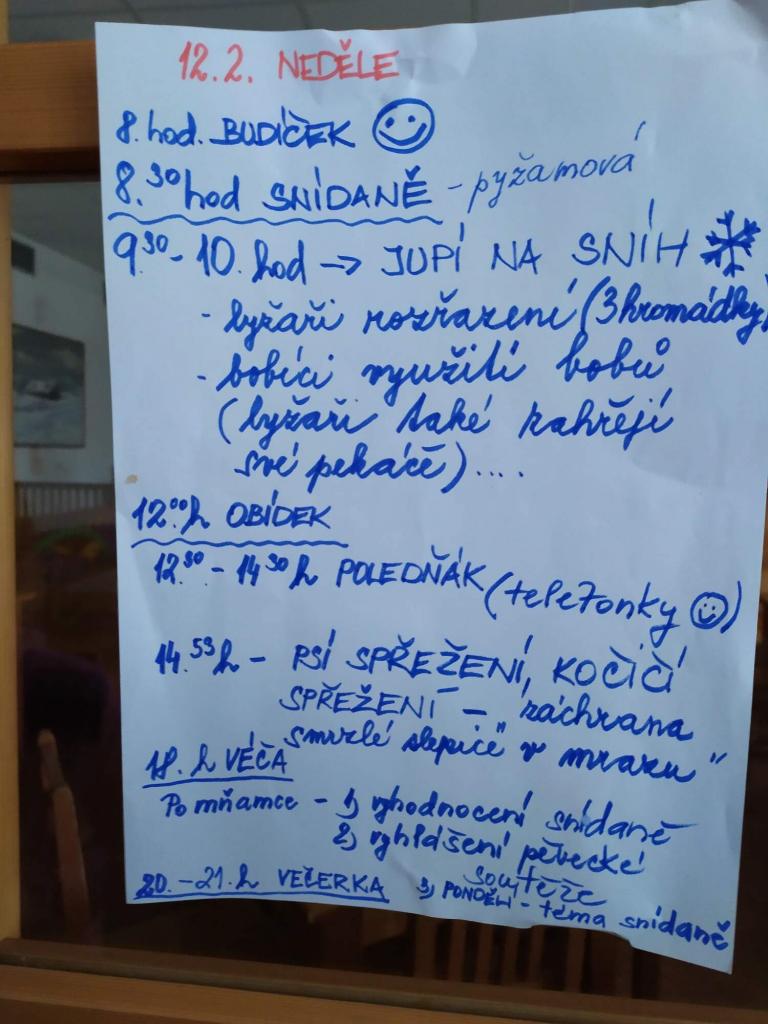 12.2. NEDĚLE
8. hod. BUDÍČEK
8.30 hod SNÍDANĚ - pyžamová
9.30 - 10. hod → JUPÍ NA SNÍH
- lyžaři rozřazení (3 hromádky)
- bobíci využití bobů
(lyžaři také zahřejí
své pekáče)....
12.00 h OBÍDEK
12.30 - 14.30 h POLEDŇÁK (telefonky)
14.53 h - PSÍ SPŘEŽENÍ, KOČIČÍ
SPŘEŽENÍ - „záchrana
smrzlé slepice" v mrazu"
18. h VÉČA
Po mňamce - 1) vyhodnocení snídaně
2) vyhlášení pěvecké
soutěže
20. - 21. h VEČERKA 3) PONDĚLÍ - téma snídaně